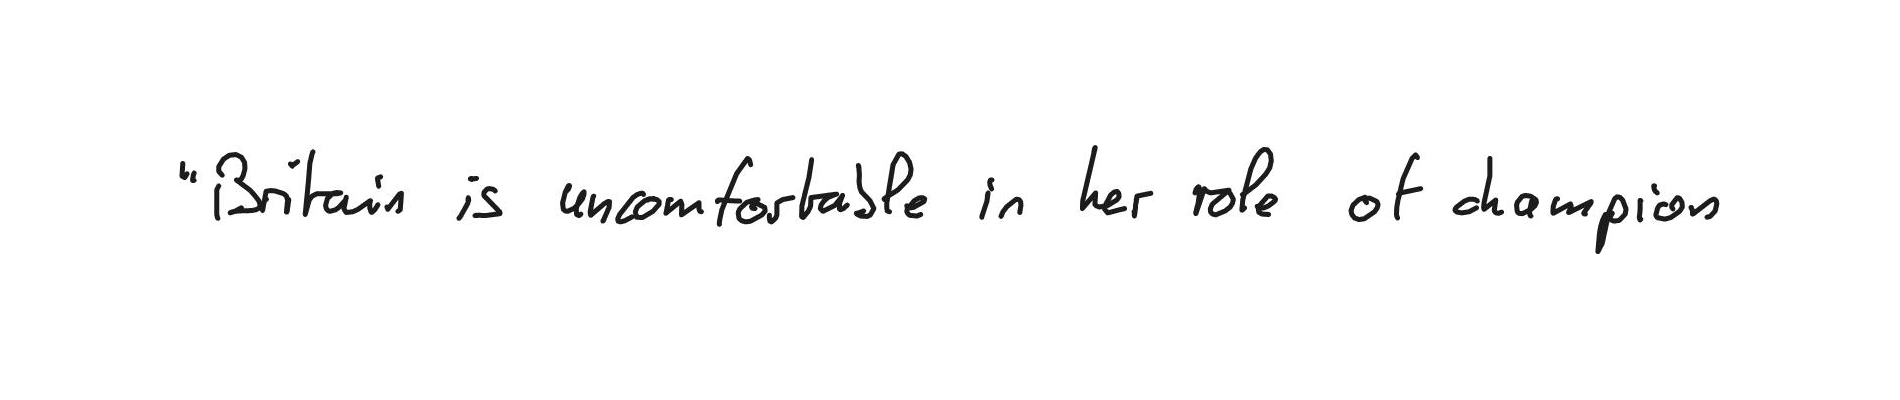 "Britain is uncomfortable in her role of champion